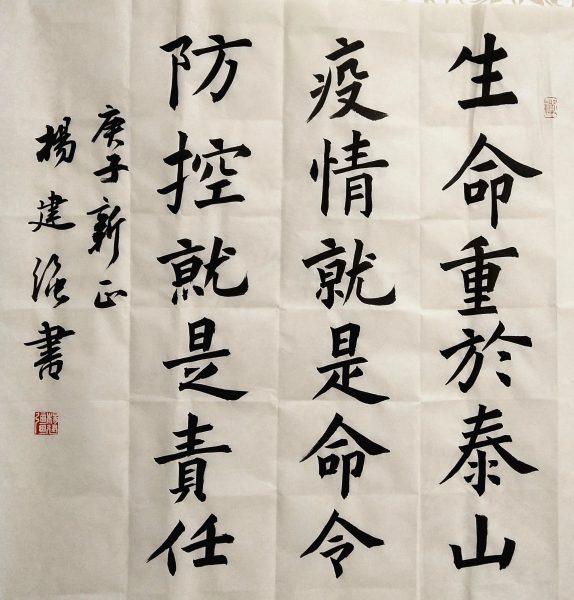 生命重於泰山
疫情就是命令
防控就是責任
庚子新正
楊建强書